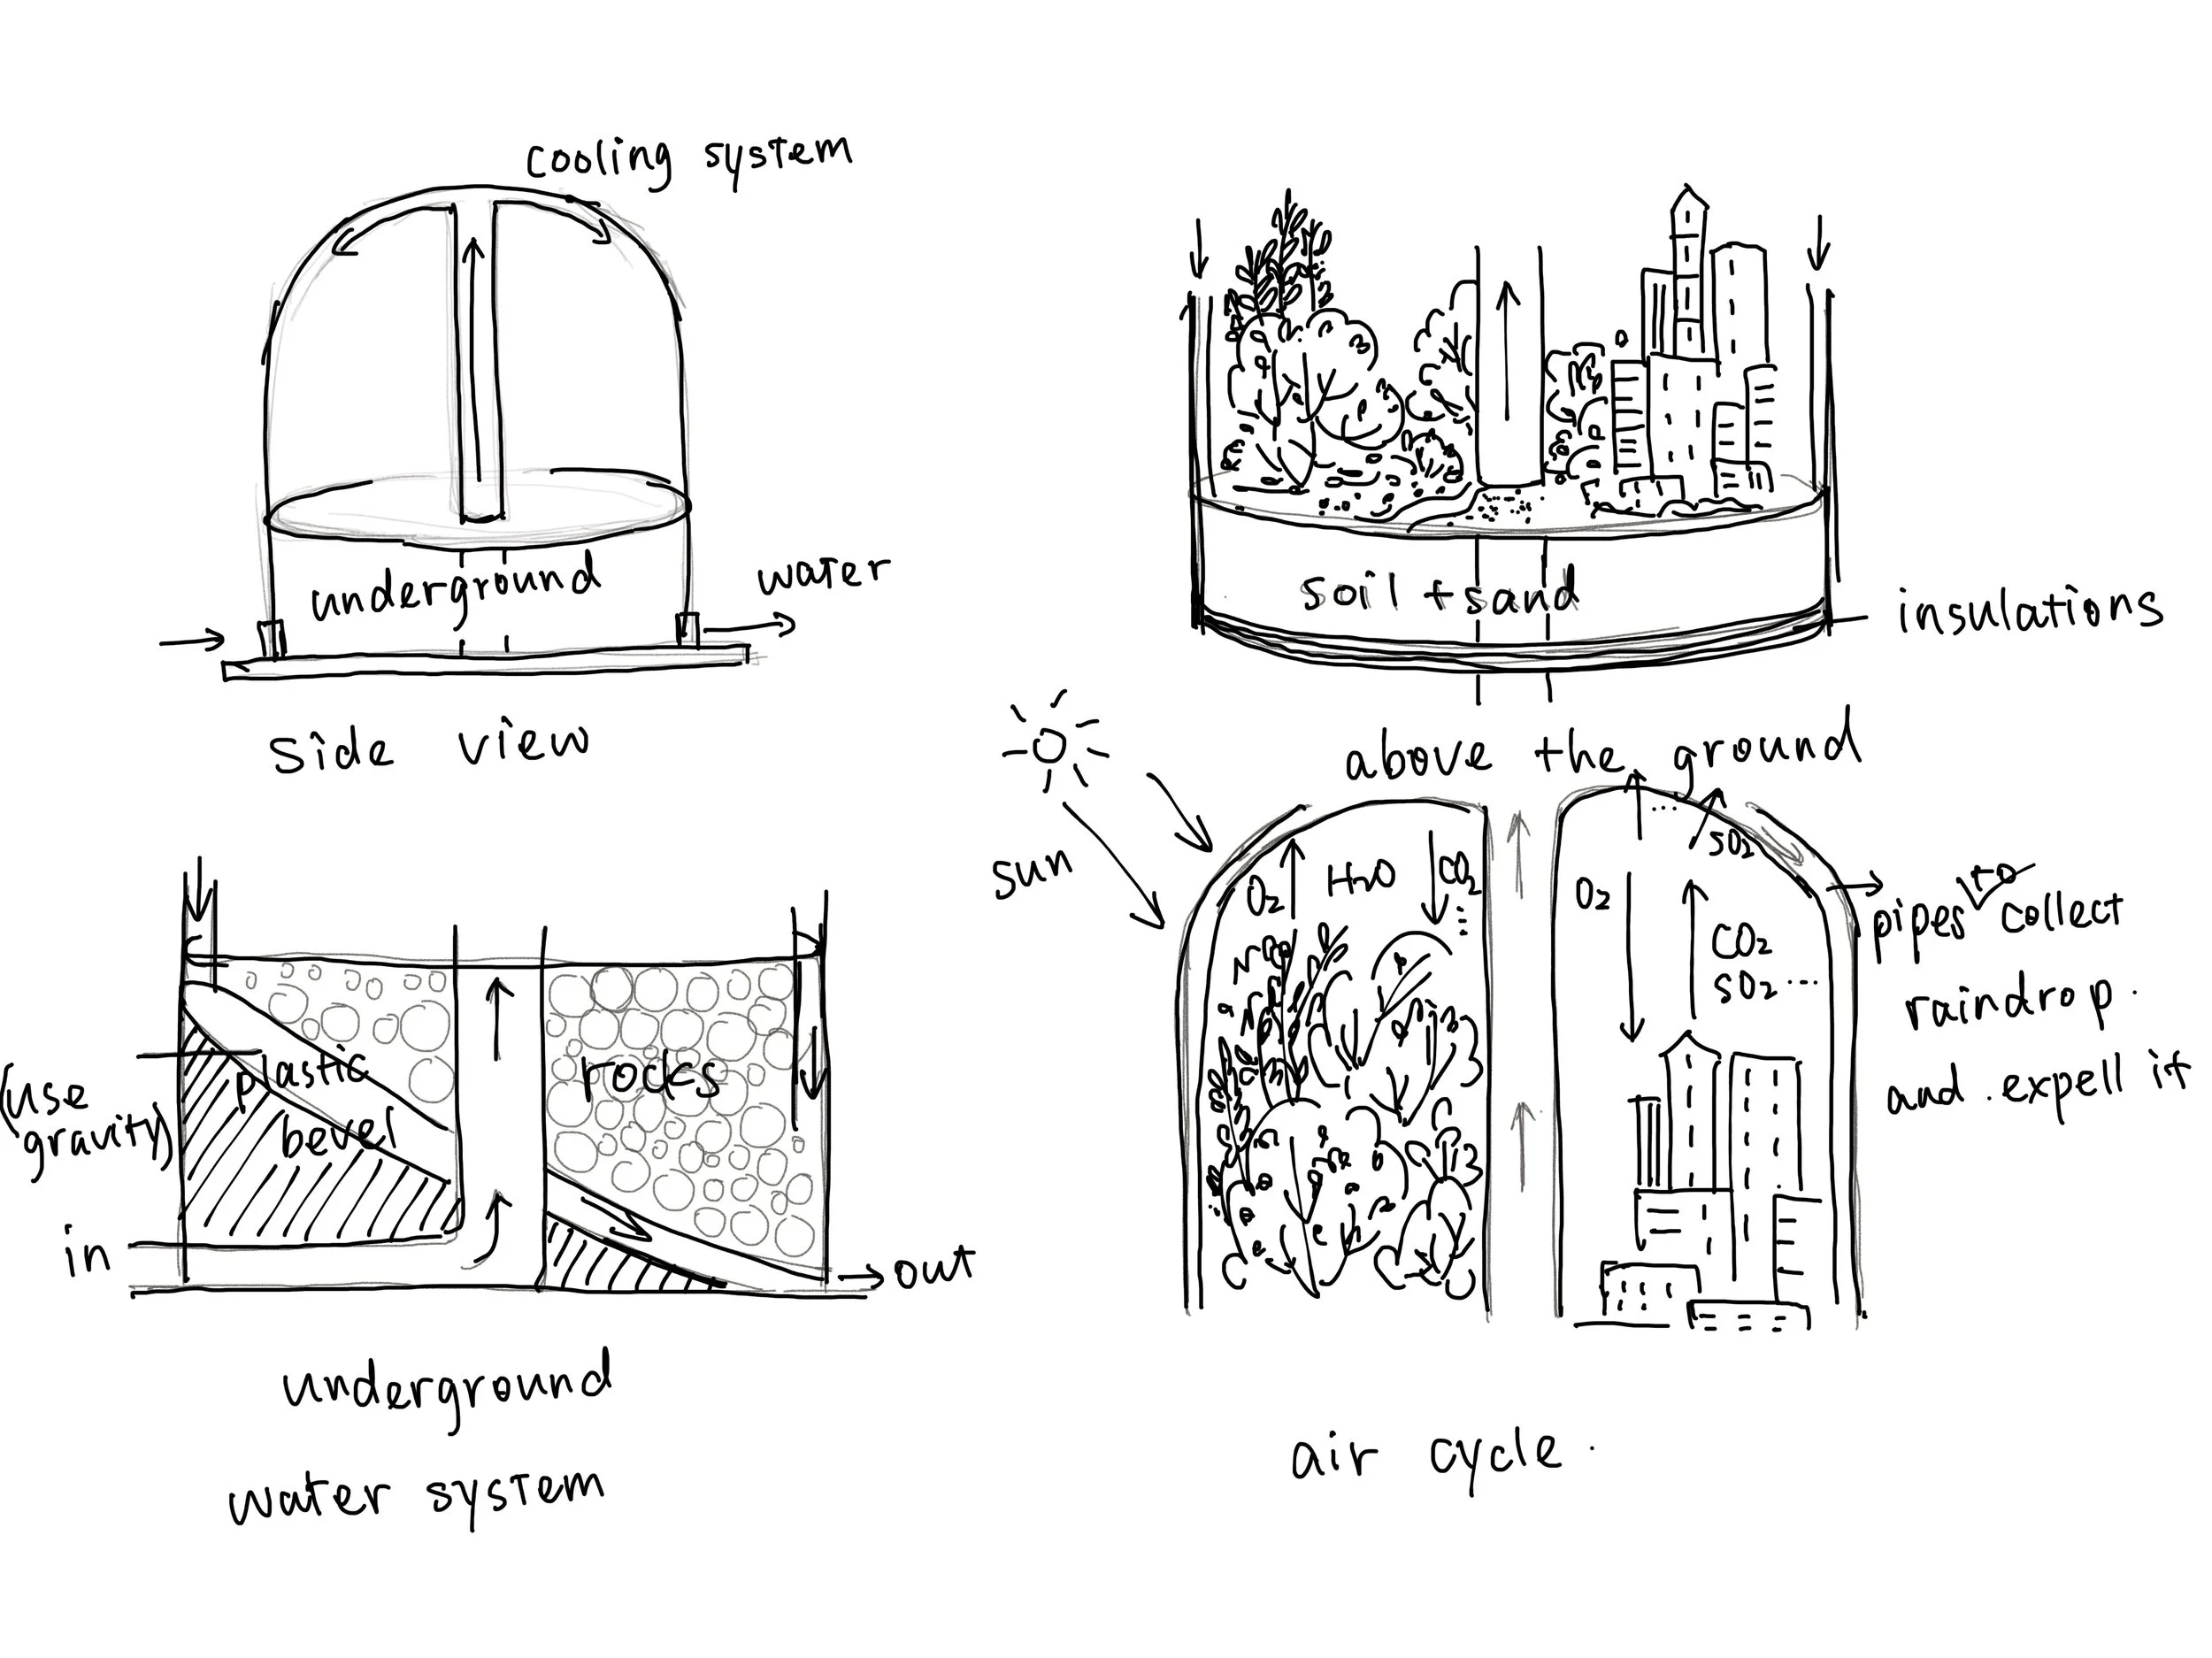 cooling system
underground
water
side view
soil + sand
insulations
above the ground
sun
O₂
H₂O
CO₂
⋮
...
SO₂
O₂
CO₂
SO₂ ...
pipes to collect
raindrop.
and . expell it
air cycle.
(use
gravity)
plastic
bevel
rocks
in
out
underground
water system